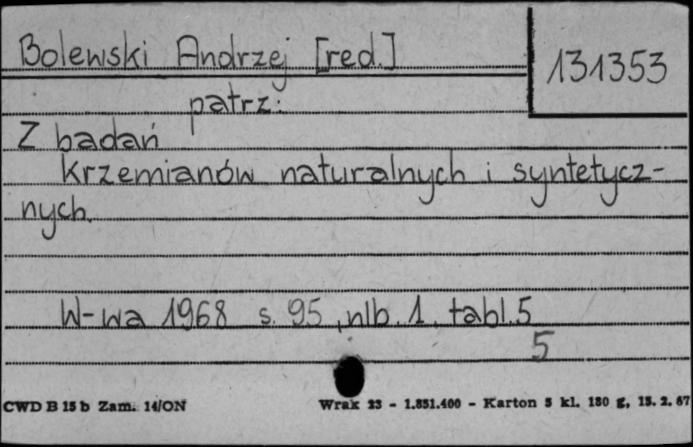 Bolewski Andrzej [red.]
131353
patrz:
Z badań
krzemianów naturalnych i syntetycz-
nych.
W-wa 1968 s. 95, nlb. 1, tabl. 5
5
CWD B 15 b Zam. 14/ON
Wrak 23 - 1.851.400 - Karton 5 kl. 180 g, 15. 2. 67